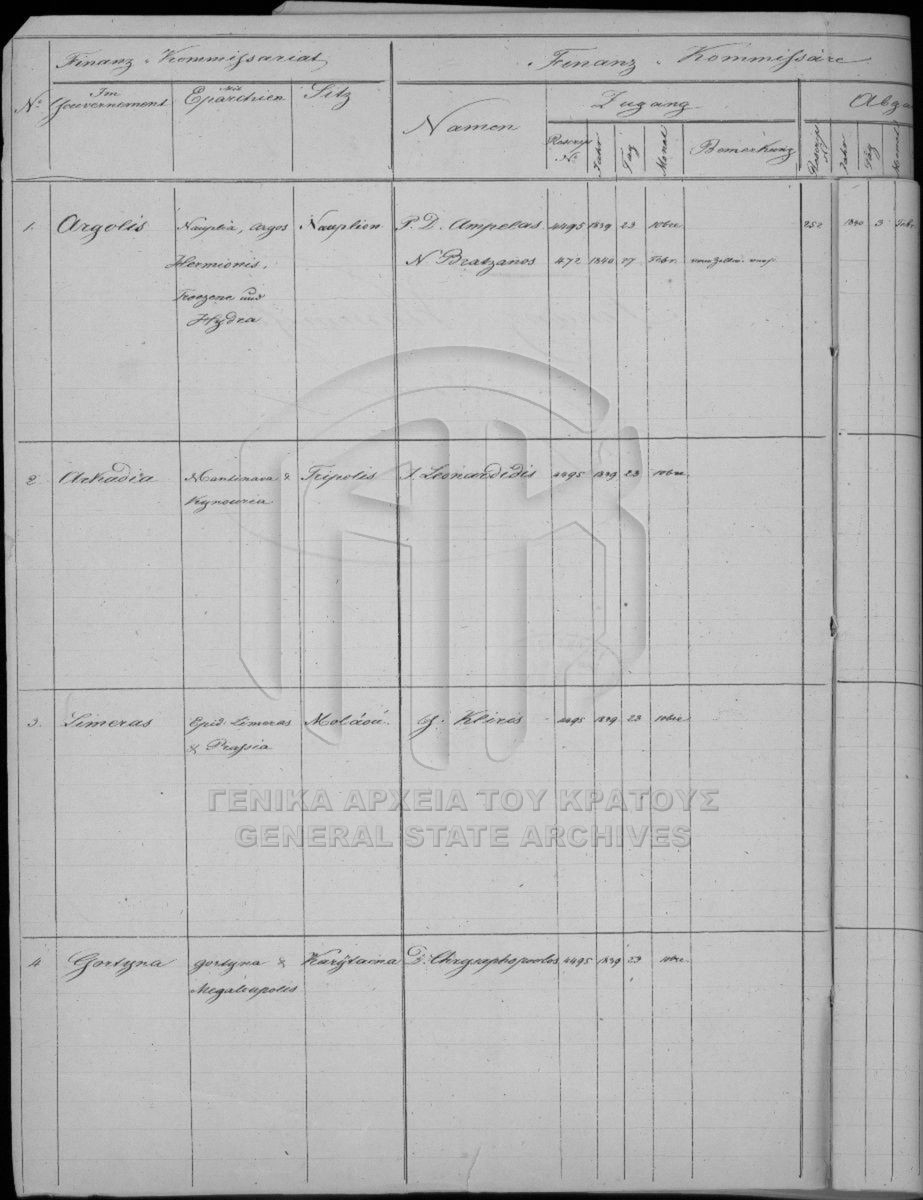 Finanz-Kommißariat Finanz-Kommißäre
No. Im Gouvernement Mit Eparchien Sitz Namen Zugang Abga
Rescript No. Jahr Tag Monat Bemerkung Rescript No. Jahr Tag Monat
1. Argolis Nauplia, Argos Nauplion P. D. Ampelas 4495 1839 23 10bre 252 1840 3 Febr
Hermionis, N Bratzanos 472 1840 27 Febr.
Troezene und
Hydra
2 Arkadia Mantinaea & Tripolis J. Leonardidis 4495 1839 23 10bre
Kynouria
3. Limeras Epid. Limeras Molaoi G. Kliris 4495 1839 23 10bre
& Praßia
4 Gortyna gortyna & Karÿtaena D. Chrysaphopoulos 4495 1839 23 10bre
Megaleapolis
ΓΕΝΙΚΑ ΑΡΧΕΙΑ ΤΟΥ ΚΡΑΤΟΥΣ
GENERAL STATE ARCHIVES